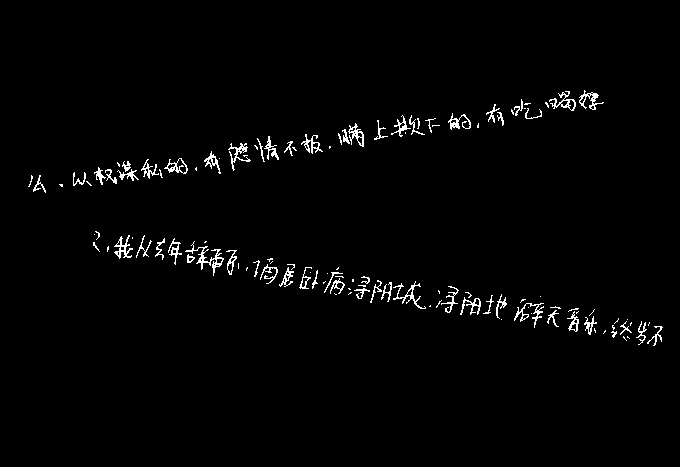 公、以权谋私的，有隐情不报，瞒上欺下的，有吃喝嫖
2、我从去年辞帝京，谪居卧病浔阳城，浔阳地僻无音乐，终岁不